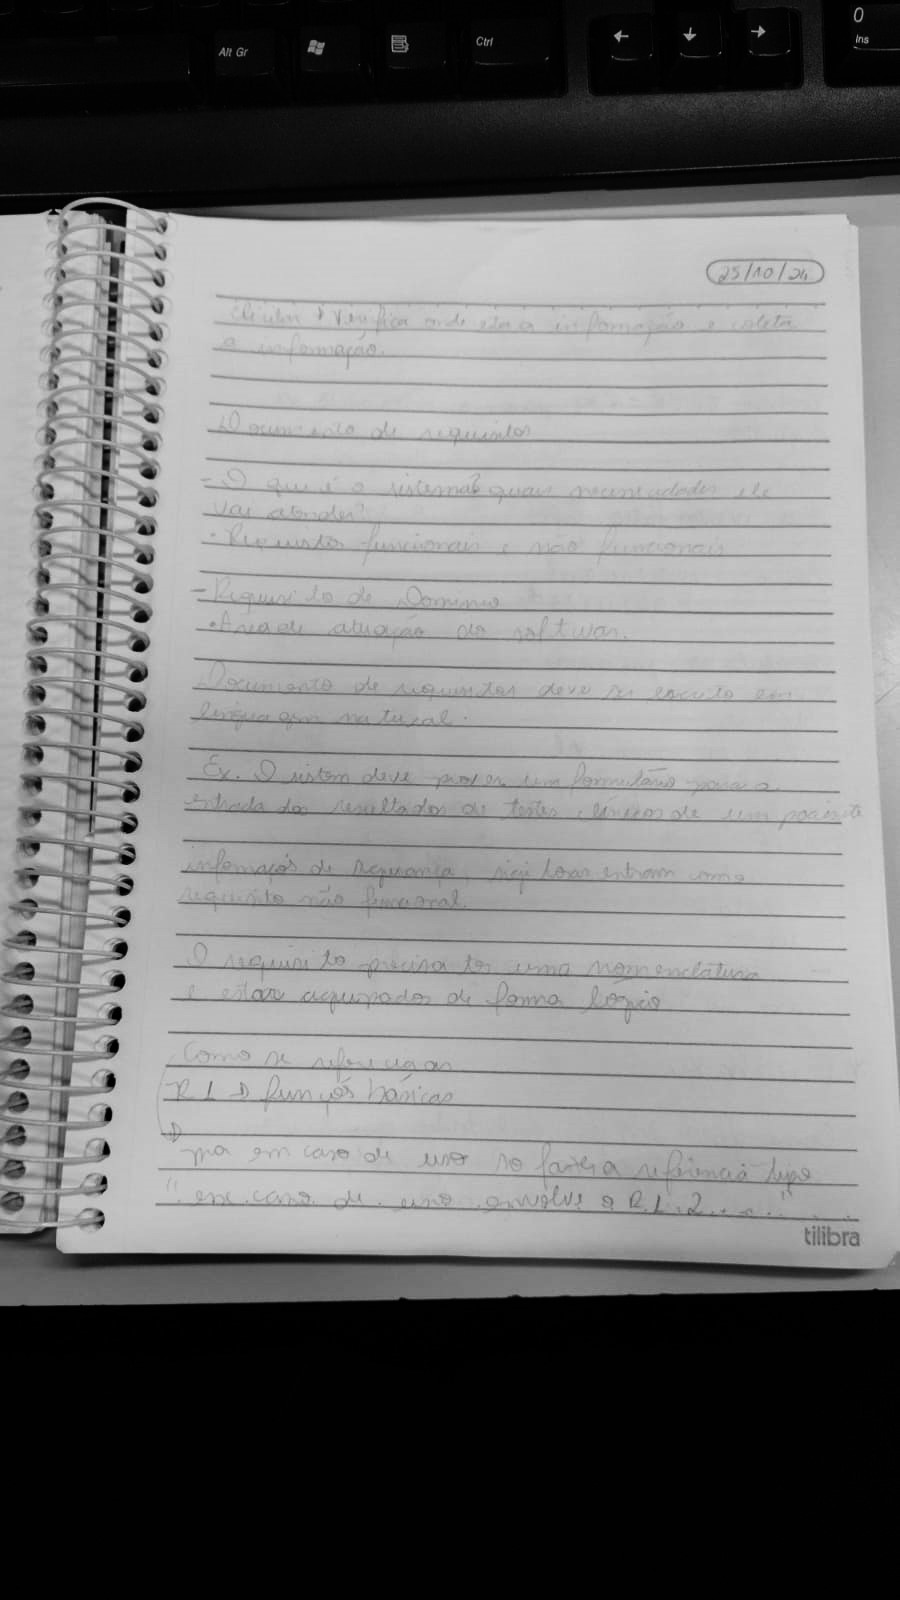 Alt Gr
Ctrl
0
Ins
25/10/24
Verifica onde esta a informação e coleta
a informação.
Documento de requisitos
- O que é o sistema? quais necessidades ele
vai atender?
• Requisitos funcionais e não funcionais
- Requisito de Dominio
• Area de atuação do software.
Documento de requisitos deve ser escrito em
linguagem natural.
Ex. O sistem deve prover um formulário para a
entrada dos resultados de testes clínicos de um paciente
informações de segurança, entram como
requisito não funcional.
O requisito precisa ter uma nomenclatura
e estar agrupados de forma logica
Como se
R1 → funções básicas
em caso de uso so a referencia tipo
" caso de uso envolve a R.1.2 . . . "
tilibra